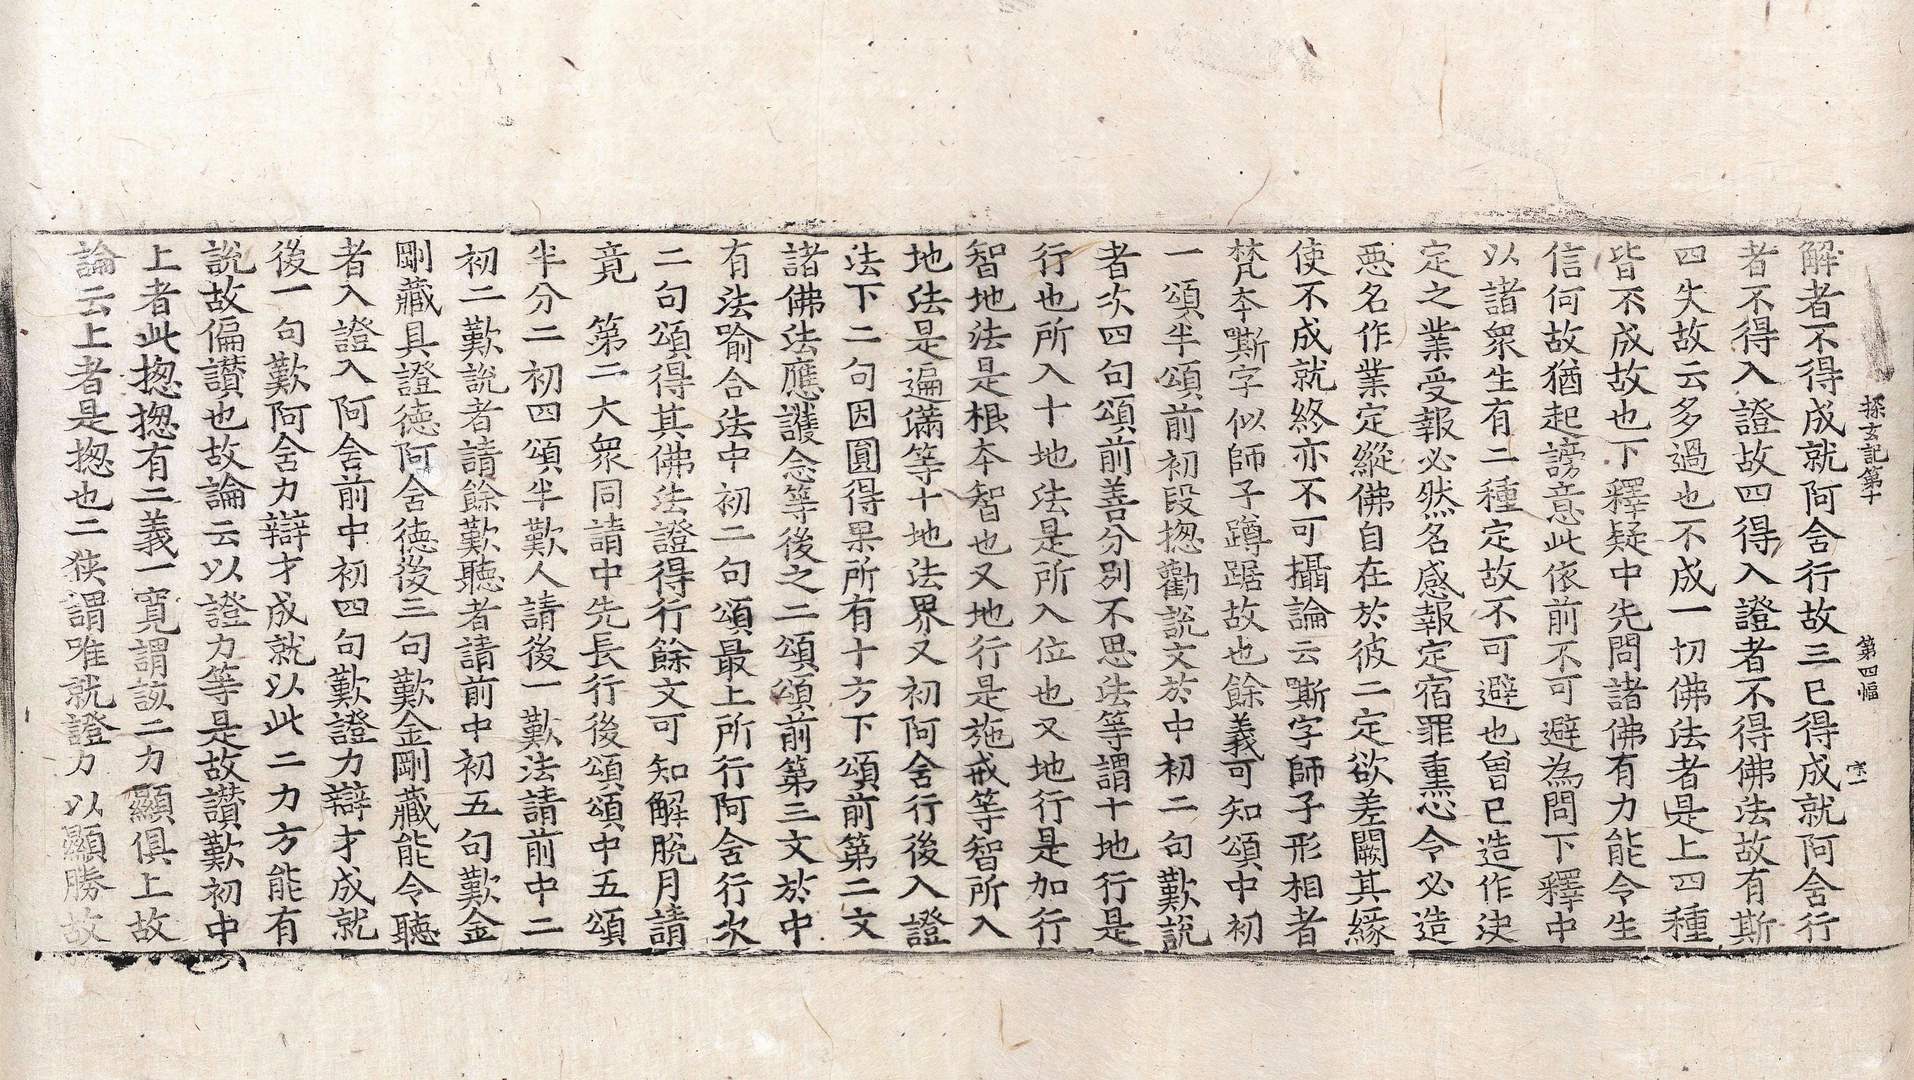 探玄記第十 第四幅 宋一
解者不得成就阿舍行故三已得成就阿舍行
者不得入證故四得入證者不得佛法故有斯
四失故云多過也不成一切佛法者是上四種
皆不成故也下釋疑中先問諸佛有力能令生
信何故猶起謗意此依前不可避為問下釋中
以諸衆生有二種定故不可避也曾已造作決
定之業受報必然名感報定宿罪熏心令必造
惡名作業定縱佛自在於彼二定欲差闕其緣
使不成就終亦不可攝論云嘶字師子形相者
梵夲嘶字似師子蹲踞故也餘義可知頌中初
一頌半頌前初段揔勸說文於中初二句歎說
者次四句頌前善分別不思法等謂十地行是
行也所入十地法是所入位也又地行是加行
智地法是根夲智也又地行是施戒等智所入
地法是遍滿等十地法界又初阿舍行後入證
法下二句因圓得果所有十方下頌前第二文
諸佛法應護念等後之二頌頌前第三文於中
有法喻合法中初二句頌最上所行阿舍行次
二句頌得其佛法證得行餘文可知解脫月請
竟　第二大衆同請中先長行後頌頌中五頌
半分二初四頌半歎人請後一歎法請前中二
初二歎說者請餘歎聽者請前中初五句歎金
剛藏具證德阿舍德後三句歎金剛藏能令聽
者入證入阿舍前中初四句歎證力辯才成就
後一句歎阿舍力辯才成就以此二力方能有
說故偏讃也故論云以證力等是故讃歎初中
上者此揔揔有二義一寬謂該二力顯俱上故
論云上者是揔也二狹謂唯就證力以顯勝故